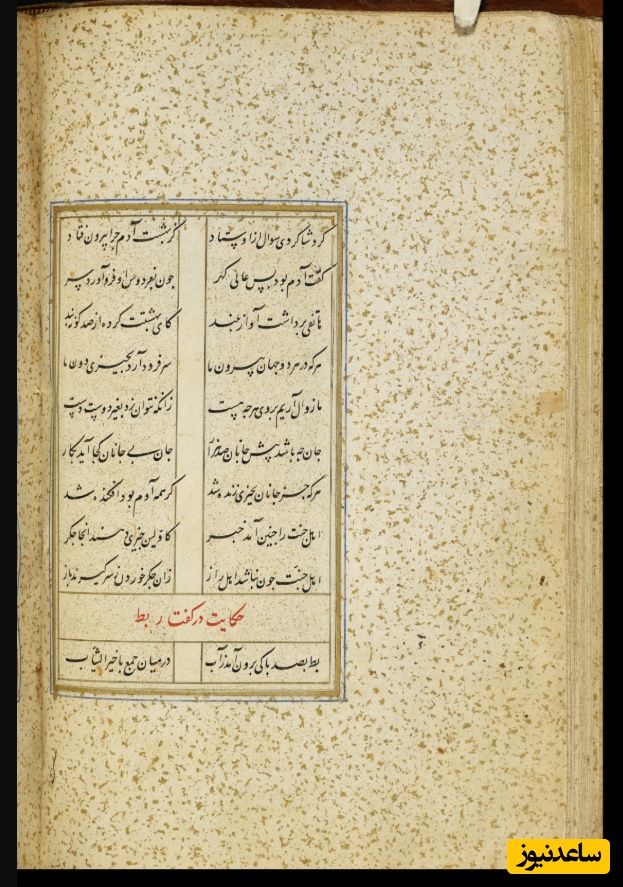 کرد شاکردی سوال از اوستاد کز بهشت آدم چرا بیرون فتاد
کفت آدم بود بس عالی کهر چون بفردوس او فرو آورد سر
هاتفی برداشت آواز بلند کای بهشتت کرده از صد کونه بند
هرکه در هر دو جهان بیرون ما سر فرود آرد بچیزی دون ما
ما زوال آریم بر وی هرچه هست زانکه نتوان زد بغیر دوست دست
جان چه باشد پیش جانان صد هزار جان بی جانان کجا آید بکار
هرکه جز جانان بچیزی زنده شد کر همه آدم بود افکنده شد
اهل جنت را چنین آمد خبر کاولین چیزی دهند آنجا جکر
اهل جنت چون نباشد اهل راز زان جکر خوردن ز سر کیرند باز
حکایت در کفتار بط
بط بصد پاکی برون آمد ز آب در میان جمع با خیر الثیاب
ساعدنیوز